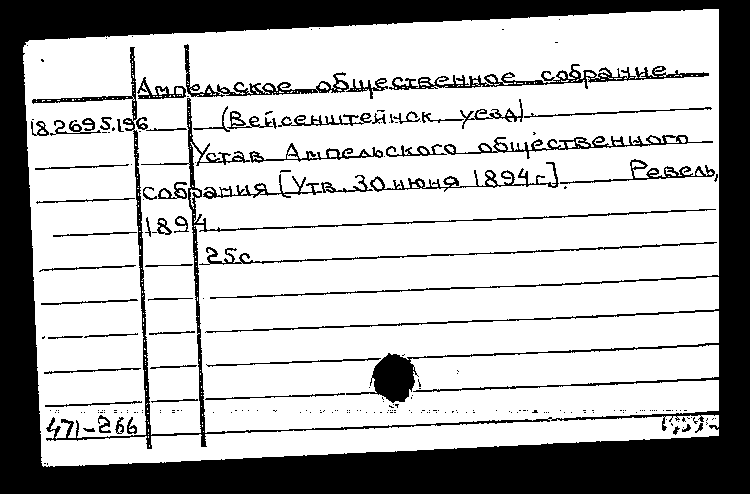 Ампельское общественное собрание.
18.2695.196 (Вейсенштейнск. уезд).
Устав Ампельского общественного
собрания [Утв. 30 июня 1894 г.]. Ревель,
1894.
25с
471-266